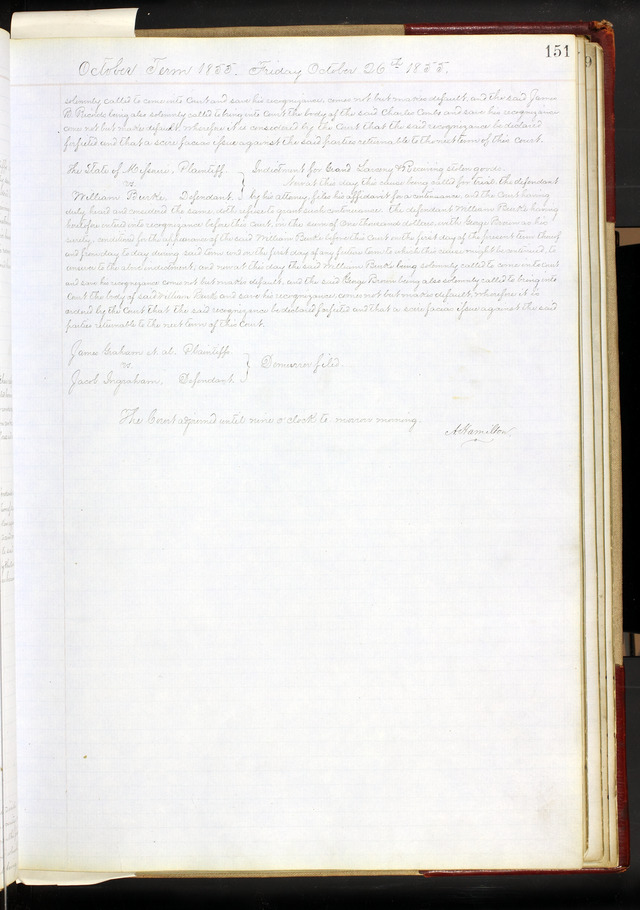 151
October Term 1855. Friday October 26th 1855.
solemnly called to come into Court and save his recognizance comes not but makes default, and the said James
B. being also solemnly called to bring into Court the body of the said Charles Combs and save his recognizance
come not but makes default, wherefore it is considered by the Court that the said recognizance be declared
forfeited and that a scire facias issue against the said parties returnable to the next term of this court.
The State of Missouri, Plaintiff.
vs
William Burke. Defendant.
Indictment for Grand Larceny & Receiving stolen goods.
Now at this day this cause being called for trial the defendant
by his attorney, files his affidavit for a continuance, and the Court having
duly heard and considered the same doth refuse to grant such continuance. The defendant William Burke having
heretofore entered into recognizance before this Court, in the sum of One thousand dollars, with George Brown as his
surety, conditioned for the appearance of the said William Burke before this Court on the first day of the present term thereof
and from day to day during said term and on the first day of any future term to which this cause might be continued, to
answer to the above indictment, and now at this day the said William Burke being solemnly called to come into court
and save his recognizance comes not but makes default, and the said George Brown being also solemnly called to bring into
Court the body of said William Burke and save his recognizance comes not but makes default, Wherefore it is
ordered by the Court that the said recognizance be declared forfeited and that a scire facias issue against the said
parties returnable to the next term of this Court.
James Graham et al. Plaintiffs
vs
Jacob Ingraham, Defendant.
Demurrer filed.
The Court adjourned until nine o'clock to morrow morning.
A Hamilton.